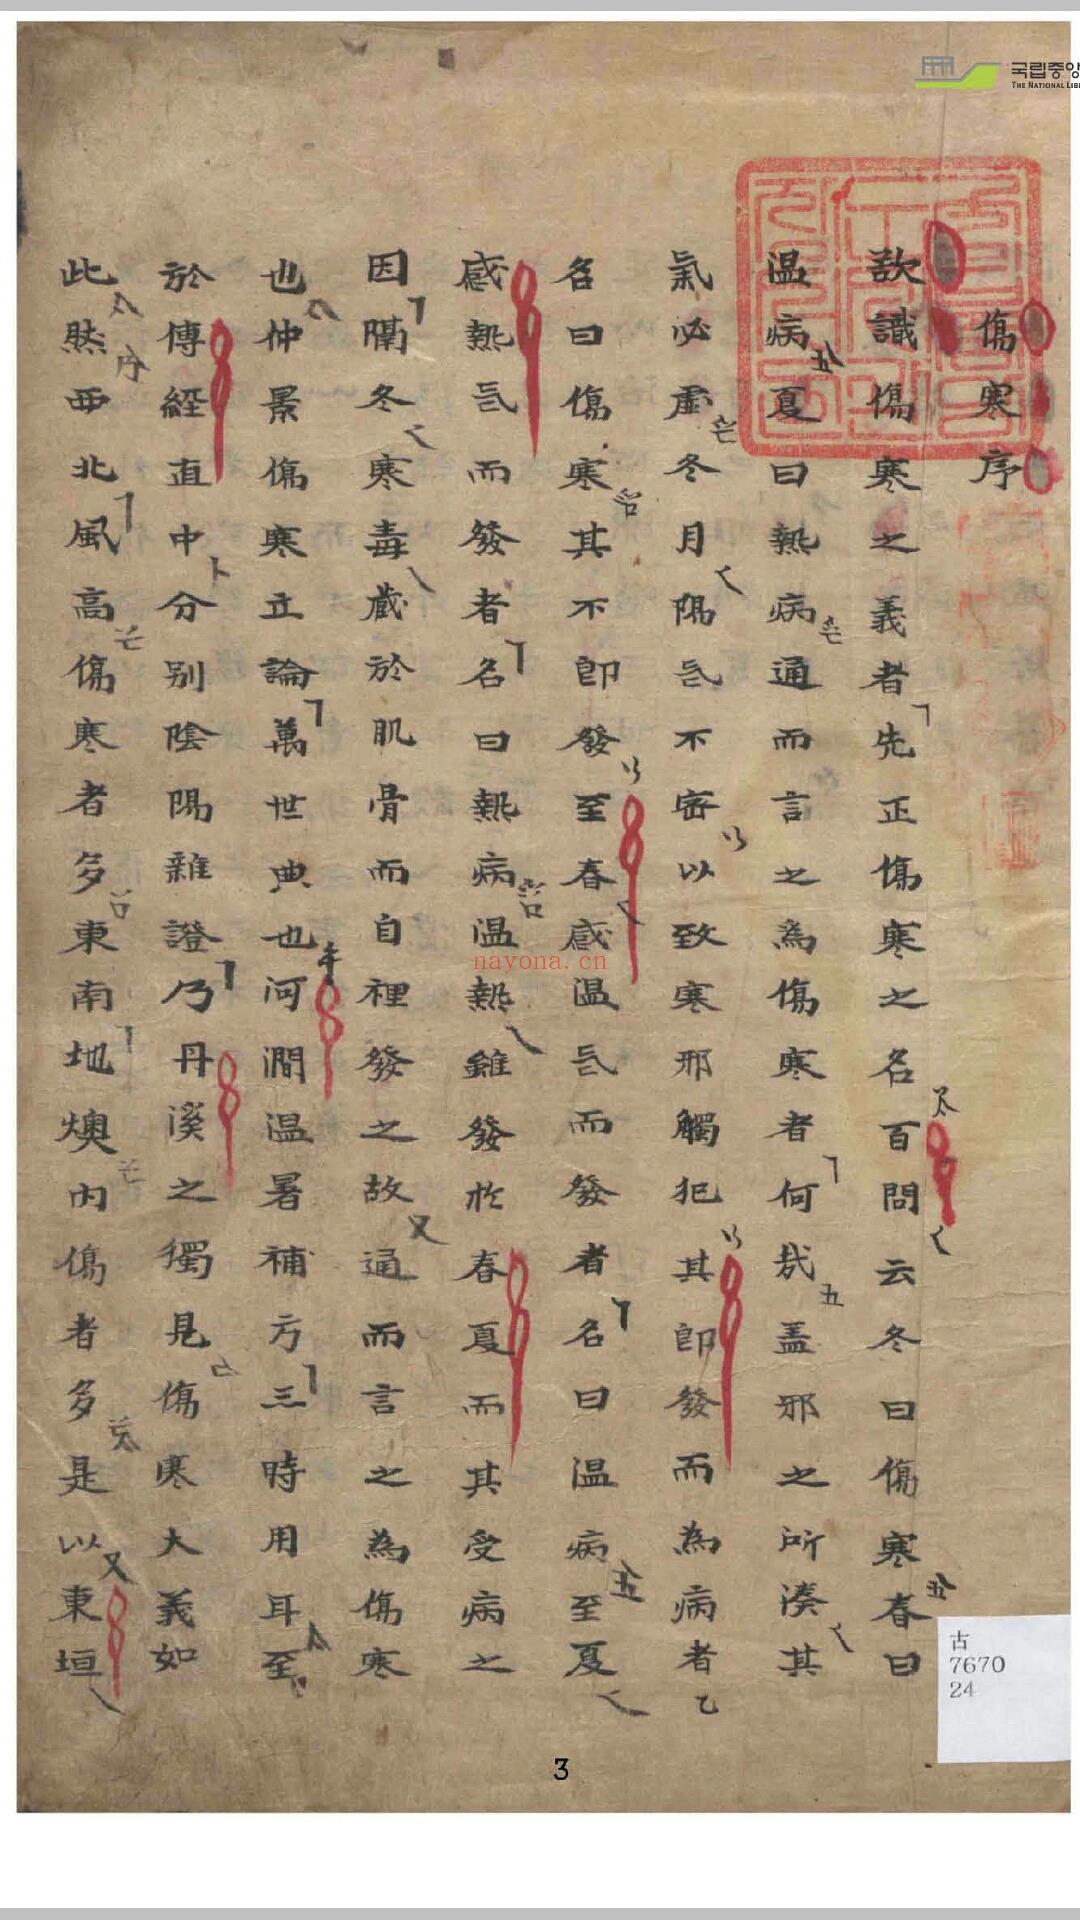 傷寒序
欲識傷寒之義者先正傷寒之名百問云冬曰傷寒春曰
温病夏曰熱病通而言之為傷寒者何㢤盖邪之所湊其
氣必虛冬月陽气不密以致寒邪觸犯其即發而為病者
名曰傷寒其不即發至春感温气而發者名曰温病至夏
感熱气而發者名曰熱病温熱雖發於春夏而其受病之
因隔冬寒毒藏於肌骨而自裡發之故通而言之為傷寒
也仲景傷寒立論萬世典也河澗温暑補方三時用耳至
於傳經直中分別陰陽雜證乃丹溪之獨見傷寒大義如
此然西北風高傷寒者多東南地燠內傷者多是以東垣
국립중앙
THE NATIONAL LIB
古
7670
24
nayona.cn
3